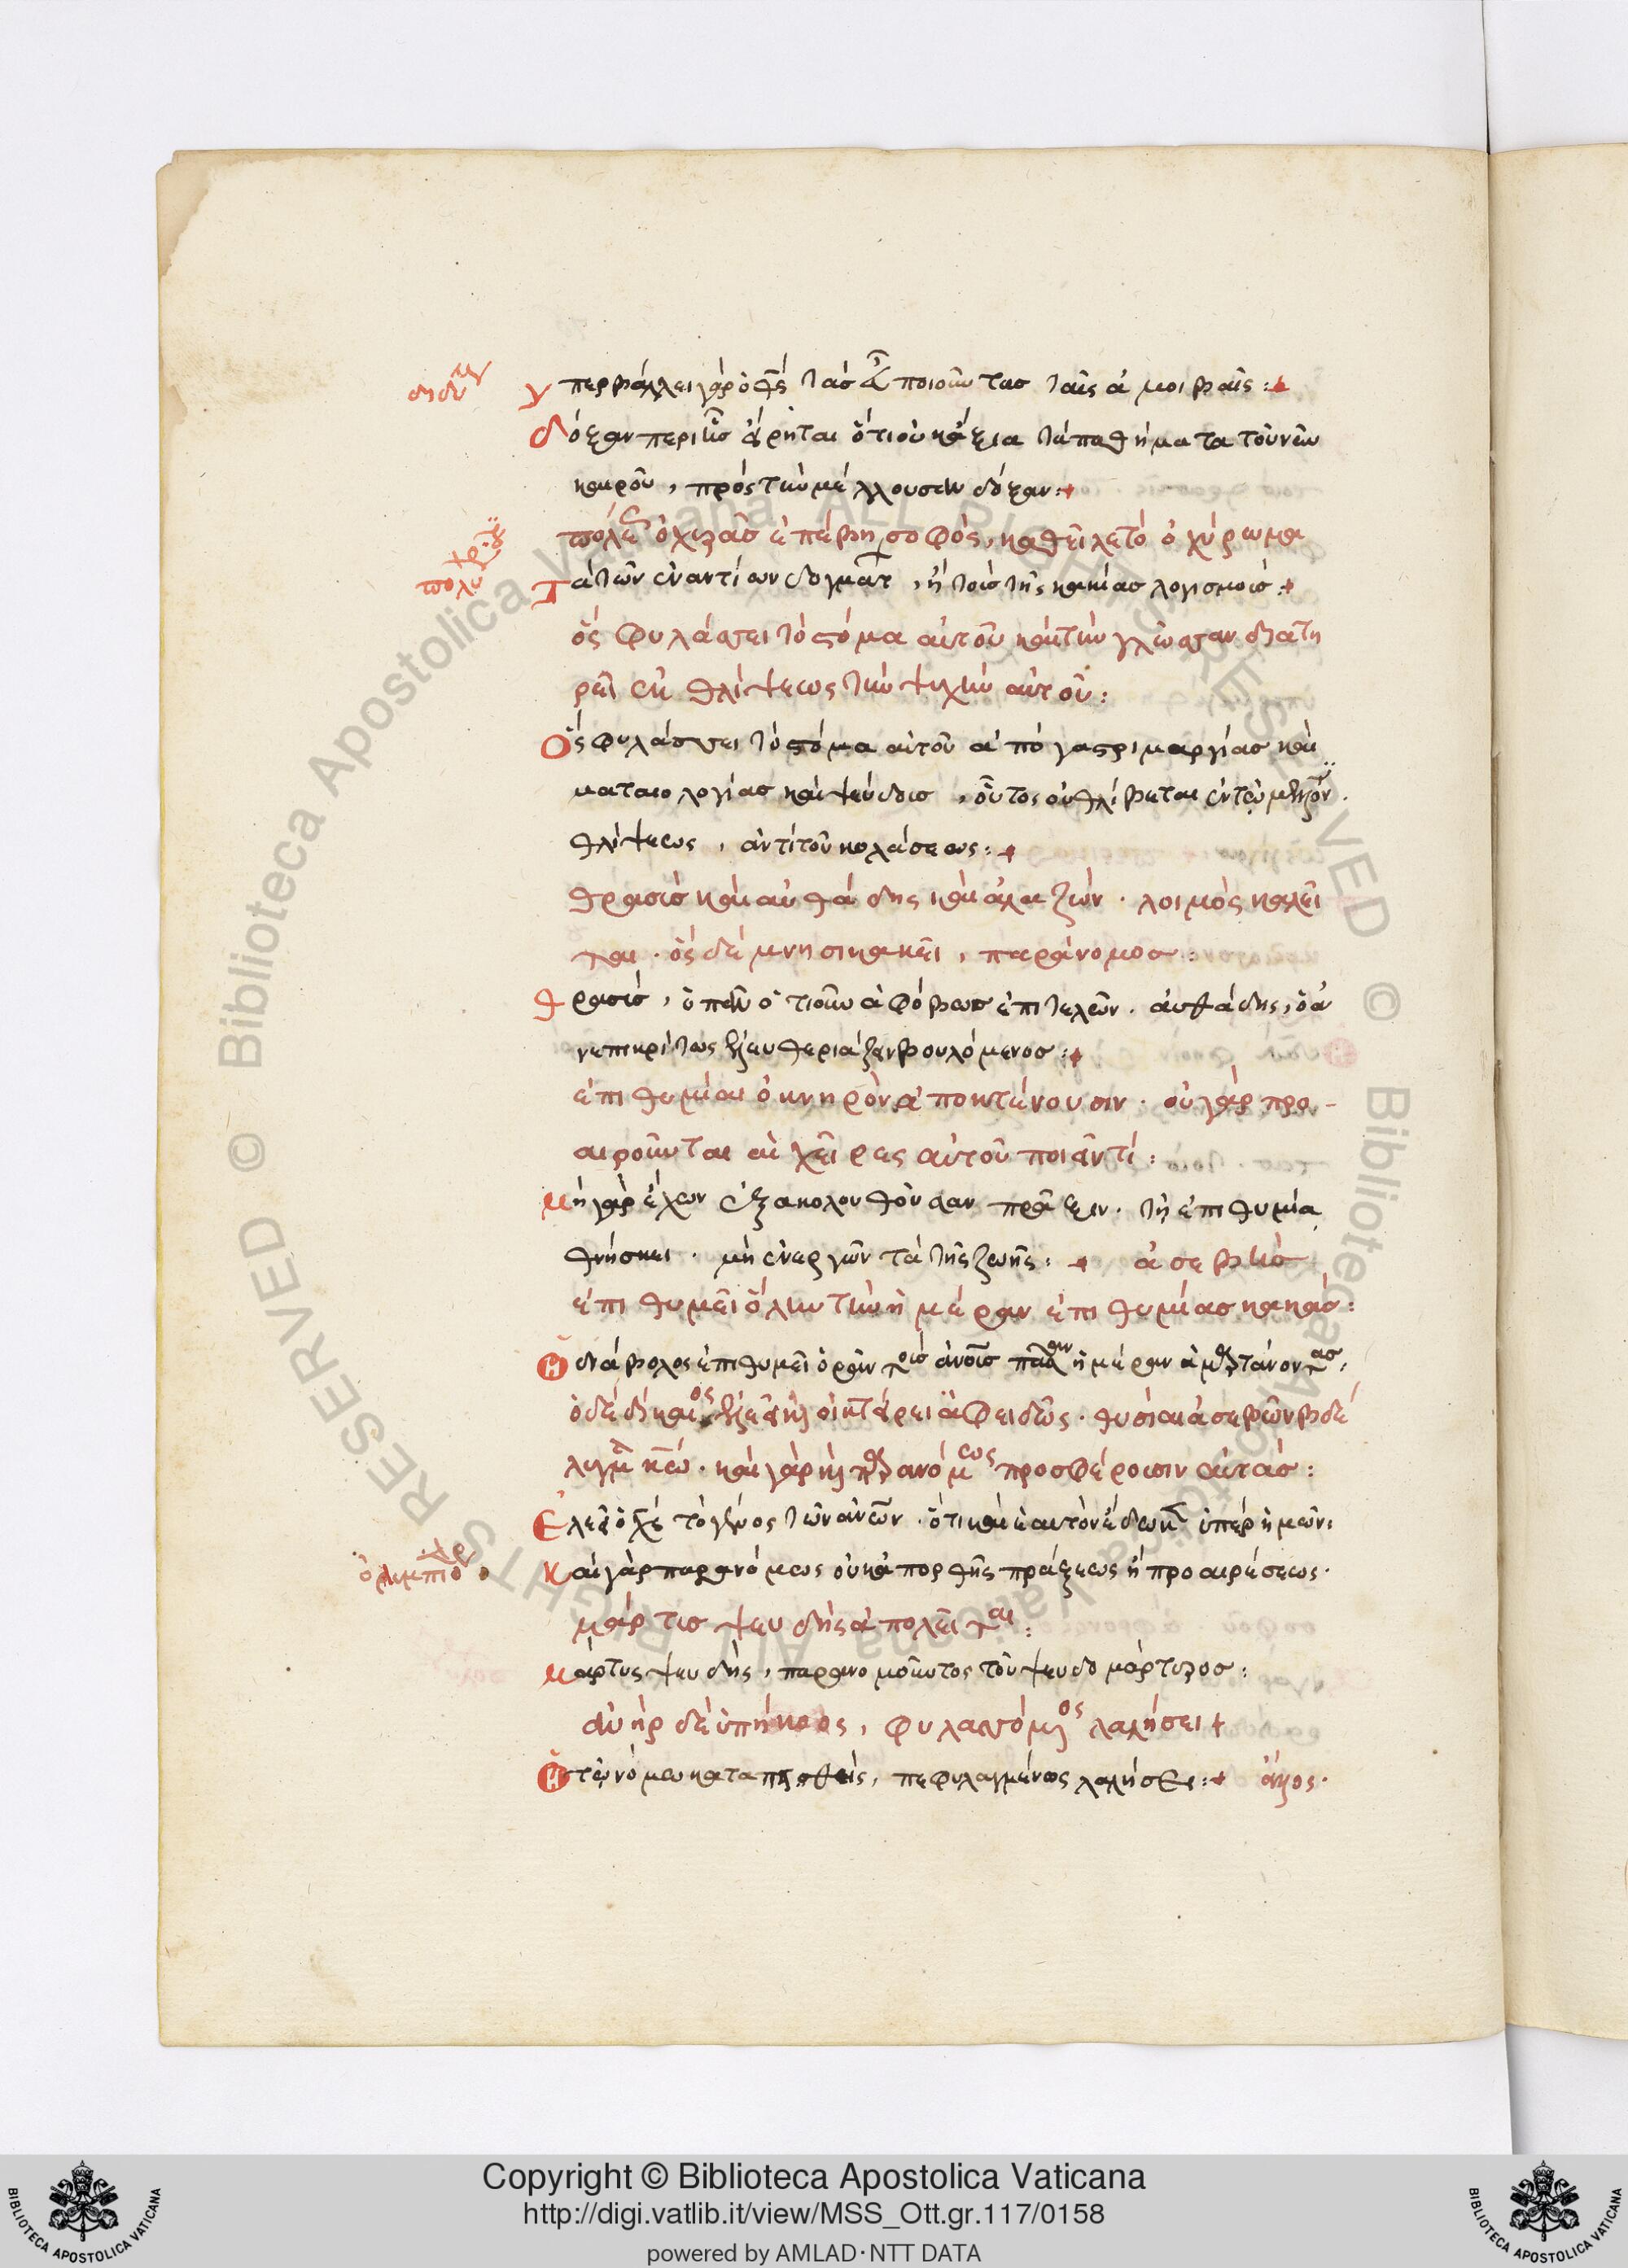 διδύμ
Υπερβάλλει γὰρ ὁ θς τὰς εὖ ποιοῦντας ταῖς ἀμοιβαῖς :+
Δόξαν περὶ ἧς εἴρηται ὅτι οὐκ ἄξια τὰ παθήματα τοῦ νῦν
καιροῦ, πρὸς τὴν μέλλουσαν δόξαν :+
πόλεις ὀχυρὰς ἐπέβη σοφὸς, καθεῖλε τὸ ὀχύρωμα
πολυχρ
Τὰ τῶν ἐναντίων δογμάτ, ἢ τοῖς τῆς κακίας λογισμοῖς :+
ὃς φυλάσσει τὸ στόμα αὐτοῦ καὶ τὴν γλῶσσαν διατη
ρεῖ ἐκ θλίψεως τὴν ψυχὴν αὐτοῦ :
Ὃς φυλάσσει τὸ στόμα αὐτοῦ ἀπὸ γαστριμαργίας καὶ
ματαιολογίας καὶ ψεύδους, οὗτος οὐ θλίβεται ἐν τῷ μέλλοντι
θλίψεως, ἀντὶ τοῦ κολάσεως :+
θρασὺς καὶ αὐθάδης καὶ ἀλαζὼν · λοιμὸς καλεῖ
ται · ὃς δὲ μνησικακεῖ, παράνομος :
Θρασὺς, ὁ πᾶν ὁτιοῦν ἀφόβως ἐπιτελῶν · αὐθάδης, ὁ ἀ
νεπικρίτως ἐλευθεριάζειν βουλόμενος :+
ἐπιθυμίαι ὀκνηρὸν ἀποκτένουσιν · οὐ γὰρ προ-
αιροῦνται αἱ χεῖρες αὐτοῦ ποιεῖν τί :
Μὴ γὰρ ἔχων ἐξακολουθοῦσαν πρᾶξιν · τῇ ἐπιθυμίᾳ
θνήσκει · μὴ ἐνεργῶν τὰ τῆς ζωῆς :+ ἀσεβὴς
ἐπιθυμεῖ ὅλην τὴν ἡμέραν ἐπιθυμίας κακάς :
Ὁ διάβολος ἐπιθυμεῖ ὁρᾶν τοὺς ἀνους πᾶσαν ἡμέραν ἁμαρτάνοντας,
ὁ δὲ δίκαιος ἐλεεῖ καὶ οἰκτείρει ἀφειδῶς · θυσίαι ἀσεβῶν βδέ
λυγμα κῶ · καὶ γὰρ καὶ παρανόμως προσφέρουσιν αὐτάς :
Ἐλεεῖ ὁ χς τὸ γένος τῶν ἀνων · ὅτι καὶ ἑαυτὸν ἔδωκεν ὑπὲρ ἡμῶν :
ὀλυμπιοδρ
Καὶ γὰρ παρανόμως οὐκ ἀπορθῆς πράξεως ἢ προαιρέσεως ·
μάρτυς ψευδὴς ἀπολεῖται :
Μάρτυς ψευδὴς, παρανομοῦντος τοῦ ψευδομάρτυρος :
ἀνὴρ δὲ ὑπήκοος, φυλασσόμενος λαλήσει +
Ὁ τῷ νόμῳ καταπεισθεὶς, πεφυλαγμένως λαλήσει :+ ἄλλος ·
Copyright © Biblioteca Apostolica Vaticana
http://digi.vatlib.it/view/MSS_Ott.gr.117/0158
powered by AMLAD·NTT DATA